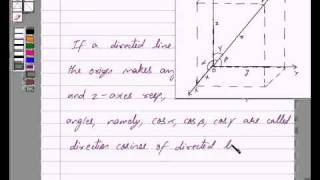 If a directed line
the origin makes an
and z-axes resp,
angles, namely, cosα, cosβ, cosγ are called
direction cosines of directed l